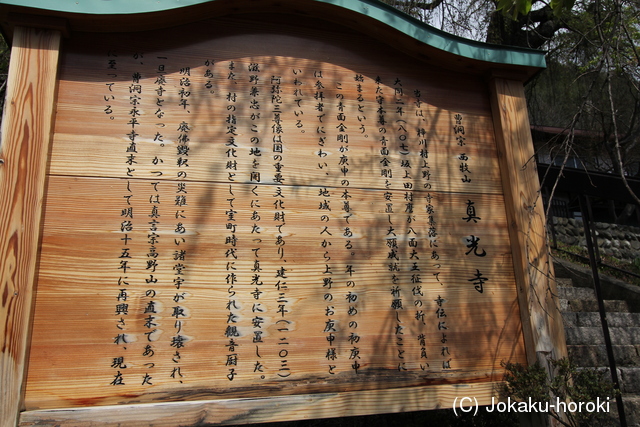 曹洞宗 西牧山 真光寺
当寺は、梓川村上野の寺家集落にあって、寺伝によれば
大同二年(八〇七)坂上田村麿が八面大王征伐の折、背負い
来た守本尊の青面金剛を安置し、大願成就を祈願したことに
始まるという。
この青面金剛が庚申の本尊である。年の初めの初庚申
は参拝者でにぎわい、地域の人から上野のお庚申様と
いわれている。
阿弥陀三尊像は国の重要文化財であり、建仁三年(一二〇三)
滋野兼忠がこの地を開くにあたって真光寺に安置した。
また、村の指定文化財として室町時代に作られた観音厨子
がある。
明治初年、廃佛毀釈の災難にあい諸堂宇が取り壊され、
一旦廃寺となった。かつては真言宗高野山の直末であった
が、曹洞宗永平寺直末として明治十五年に再興され、現在
に至っている。
(C) Jokaku-horoki